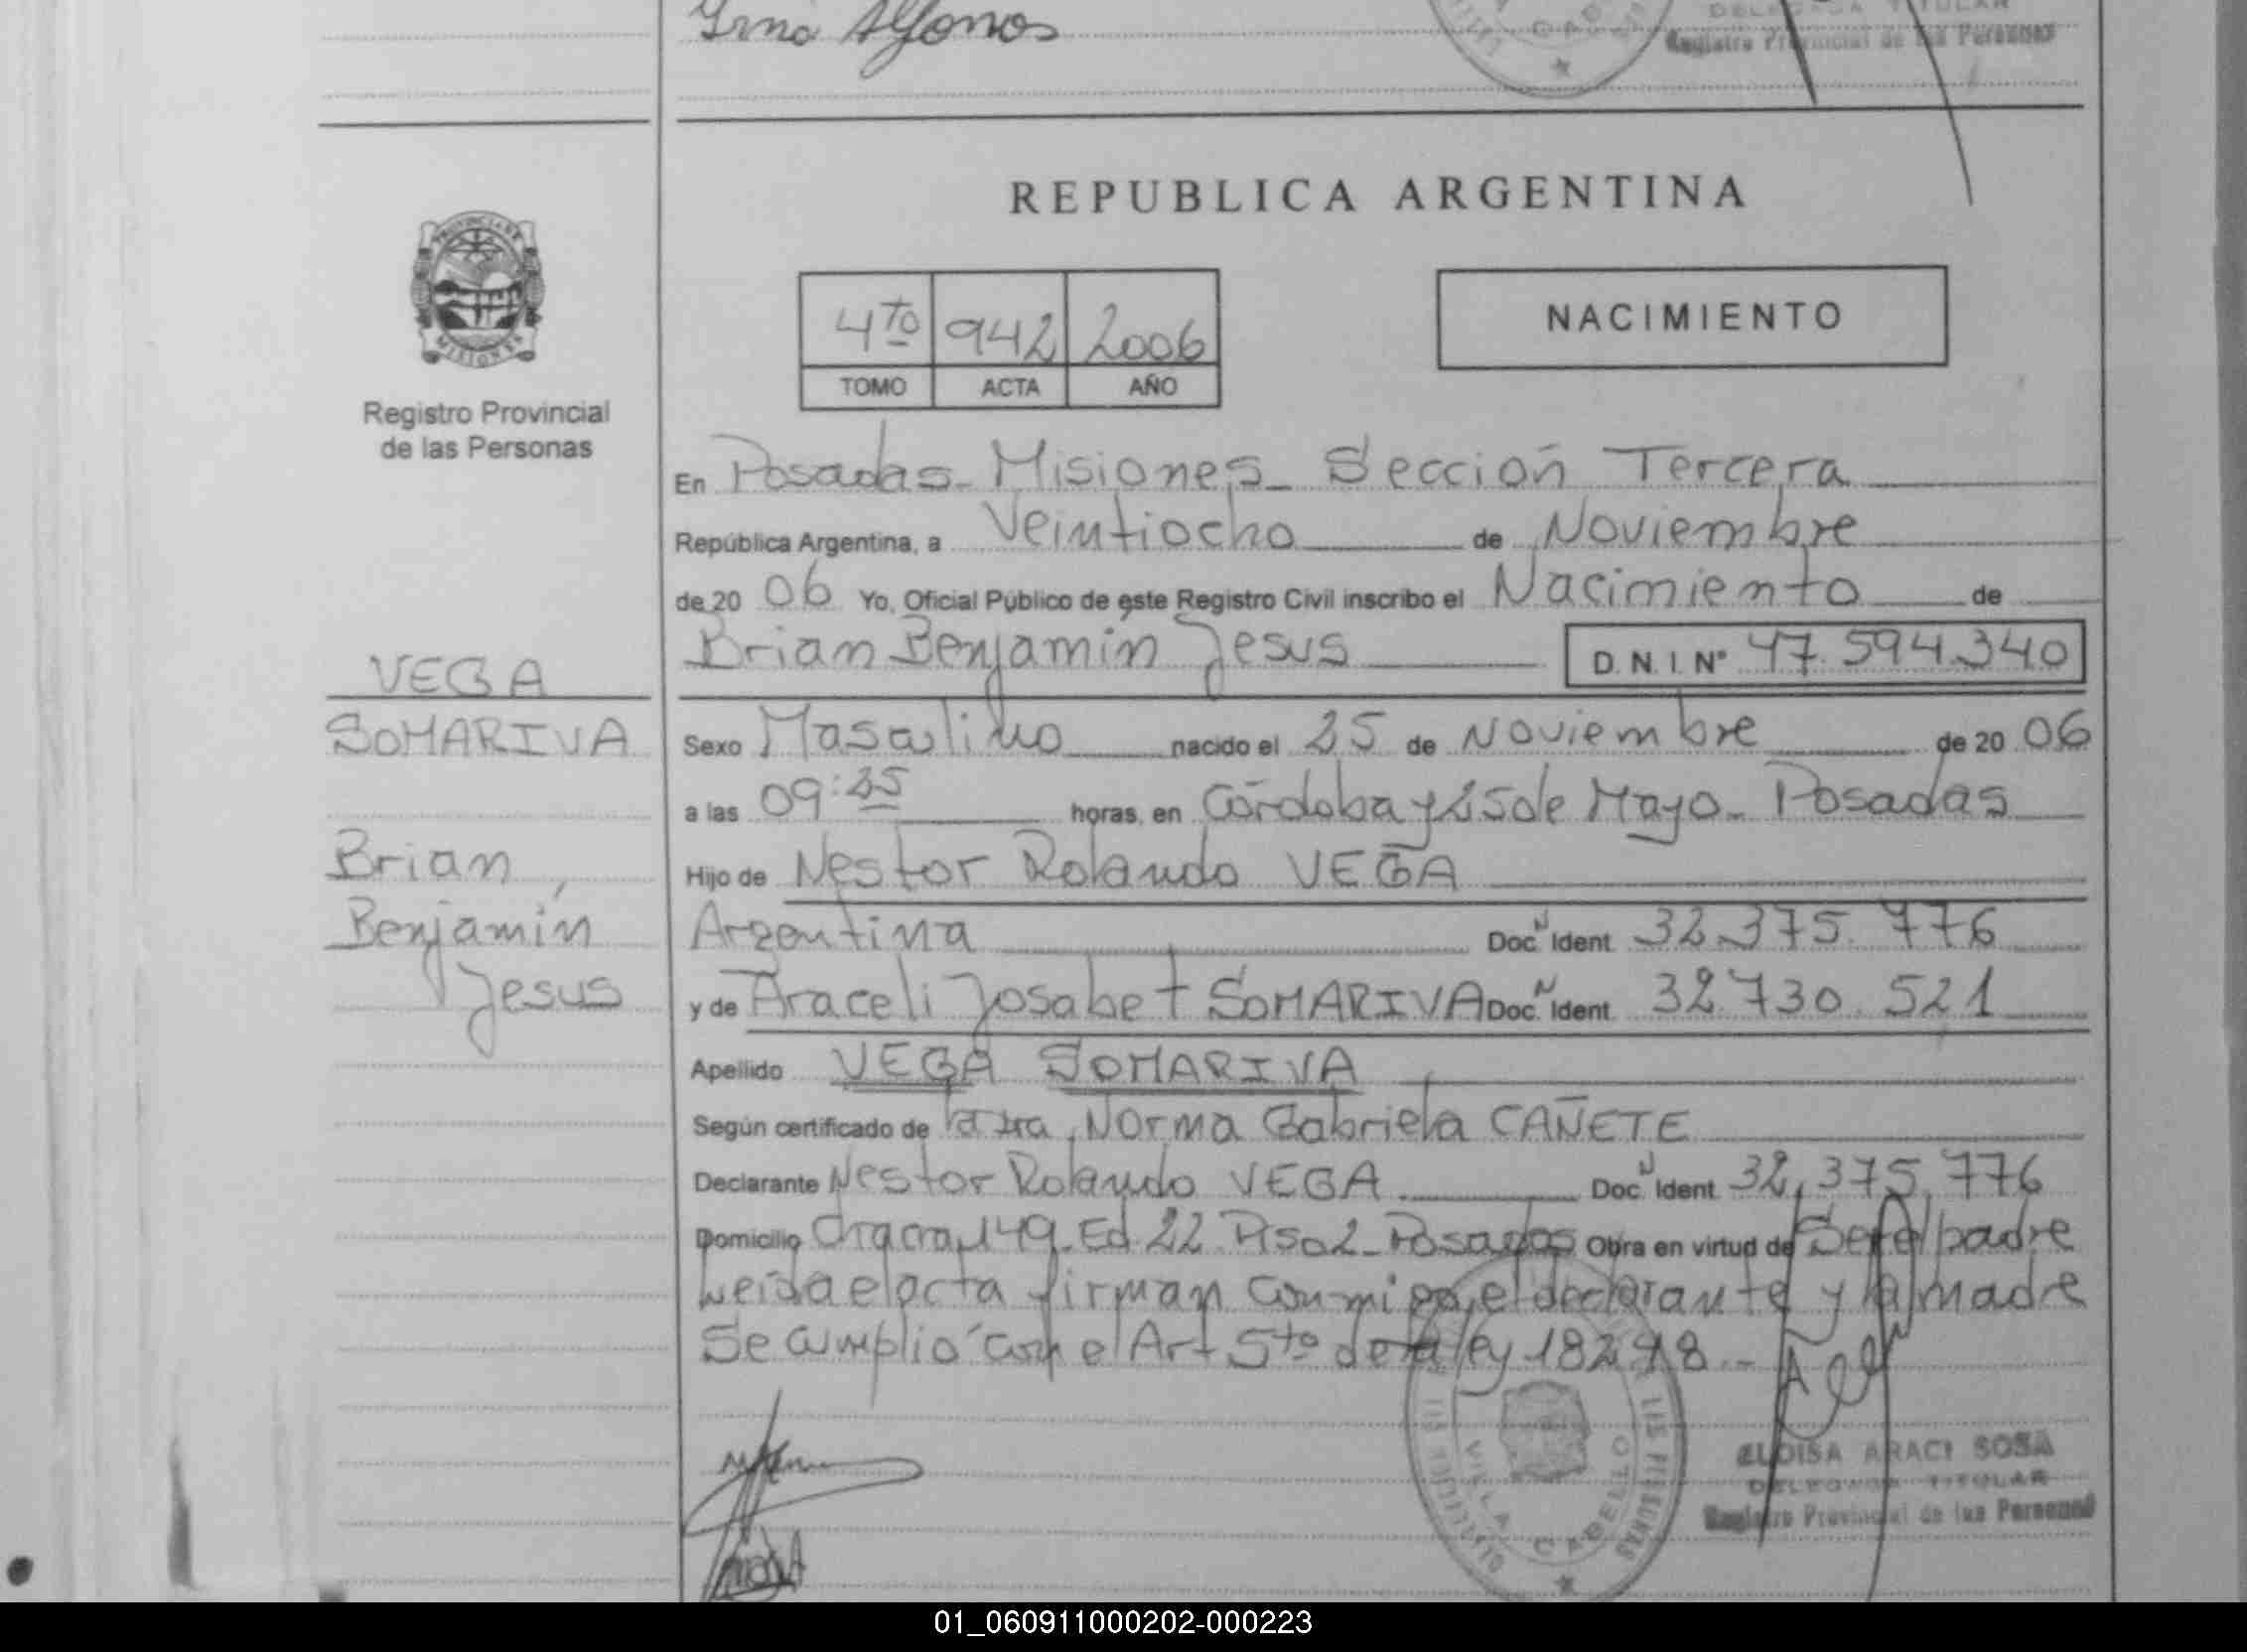 Irma Alfonso
DELEGADA TITULAR
Registro Provincial de las Personas
REPUBLICA ARGENTINA
PROVINCIA DE
MISIONES
Registro Provincial
de las Personas
4to 942 2006
TOMO ACTA AÑO
NACIMIENTO
En Posadas - Misiones - Sección Tercera
República Argentina, a Veintiocho de Noviembre
de 20 06 Yo, Oficial Público de este Registro Civil inscribo el Nacimiento de
Brian Benjamín Jesus D. N. I. Nº 47.594.340
VEGA
SOMARIVA
Brian
Benjamín
Jesus
Sexo Masculino nacido el 25 de Noviembre de 20 06
a las 09: horas, en Córdoba y 25 de Mayo - Posadas
Hijo de Nestor Rolando VEGA
Argentina Doc. N Ident. 32.375.776
y de Araceli Josabet SOMARIVA Doc. N Ident. 32.730.521
Apellido VEGA SOMARIVA
Según certificado de la Norma Gabriela CAÑETE
Declarante Nestor Rolando VEGA Doc. N Ident. 32.375.776
Domicilio Chacra 149 - Ed. 22 Piso 2 - Posadas Obra en virtud de Ser el padre
Leída el acta firman conmigo, el declarante y la madre
Se cumplió con el Art 5to de la ley 18248 -
VILLA CABELLO
ELOISA ARACI SOSA
DELEGADA TITULAR
Registro Provincial de las Personas
01_060911000202-000223